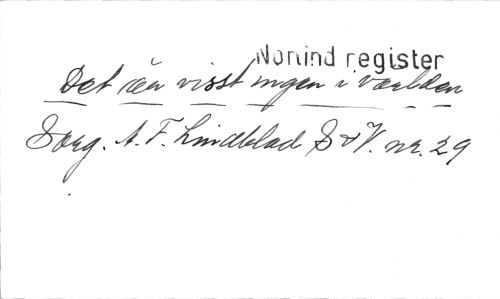 Norlind register
Det är visst ingen i världen
Sorg. A. F. Lindblad S & V. nr. 29